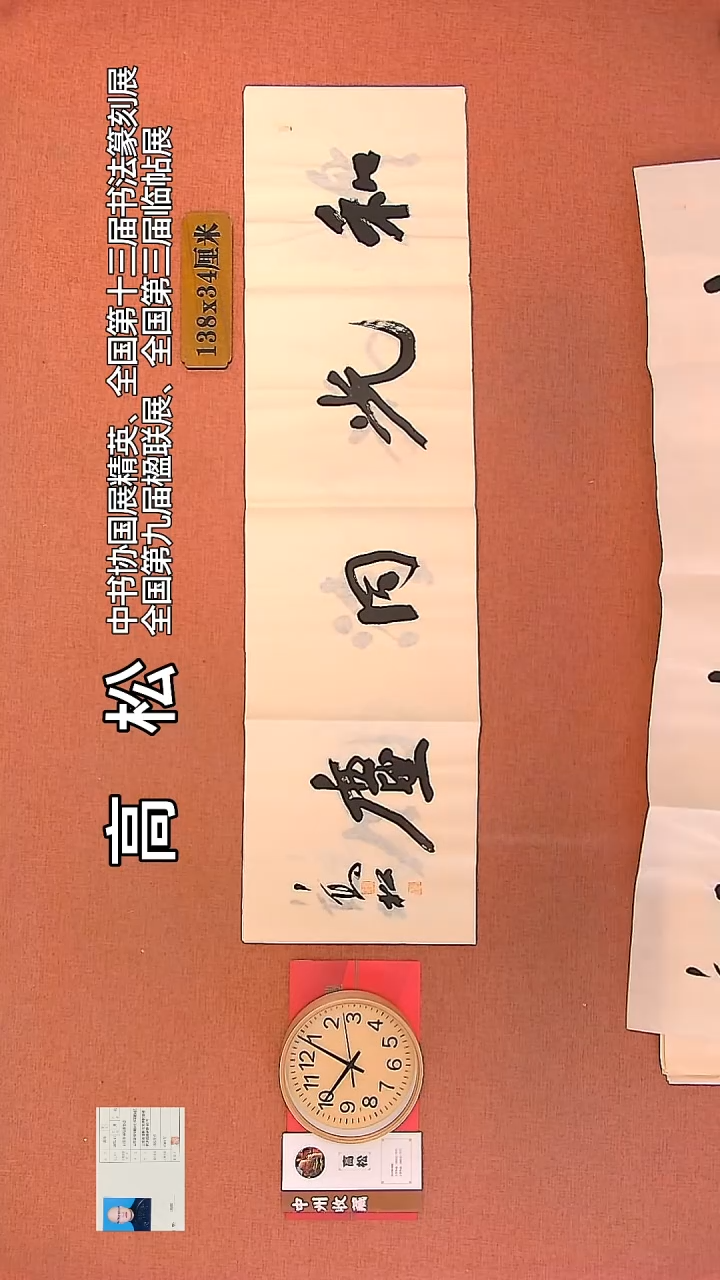 高 松
中书协国展精英、全国第十三届书法篆刻展
全国第九届楹联展、全国第三届临帖展
138x34厘米
和光同塵
高松
12
1
2
3
4
5
6
7
8
9
10
11
高松
中州收藏